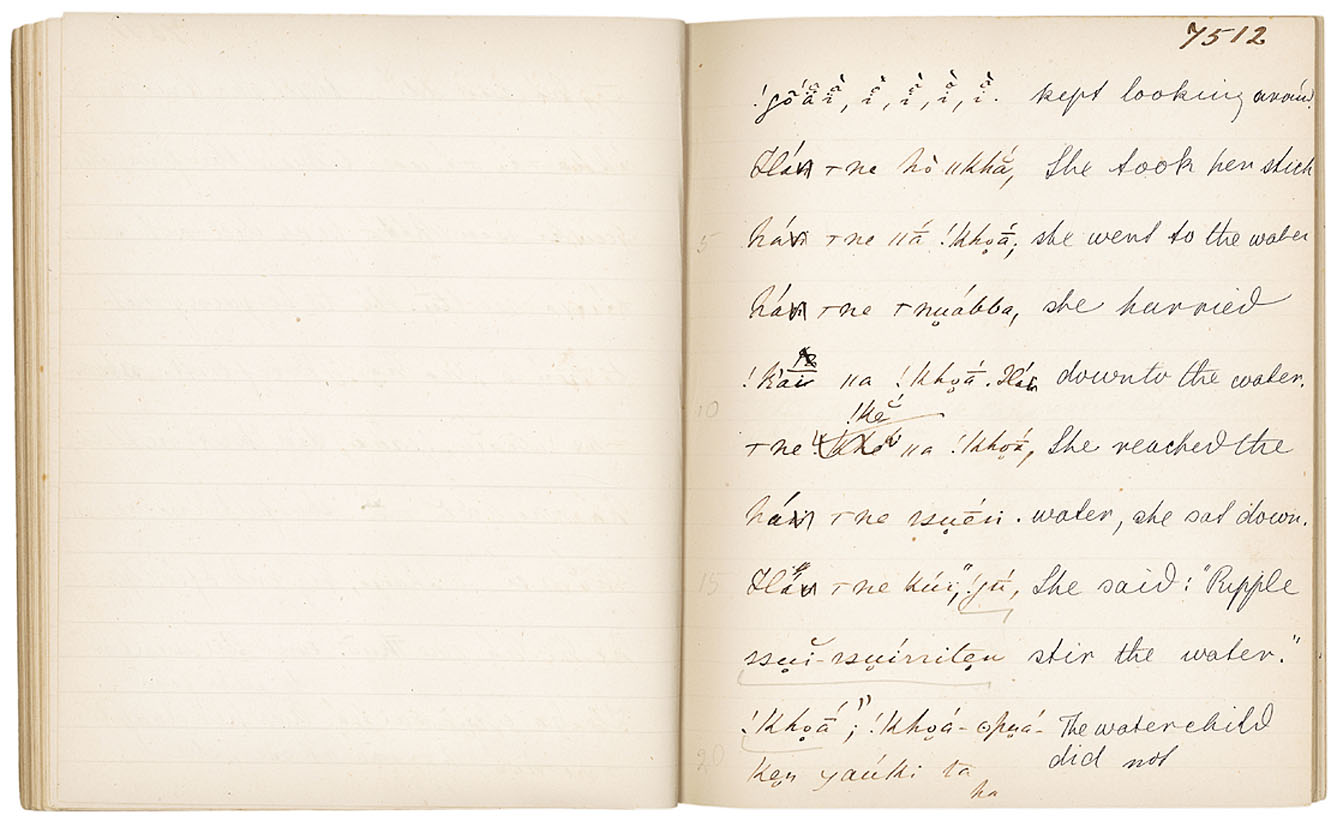 7512
!gõä́ĩ, ĩ́, ĩ́, ĩ́, ĩ́. kept looking around.
Háń ⊤ne hò ǁkhá̆, She took her stick
5 háń ⊤ne ǁā́ !kho̤ā́; she went to the water
háń ⊤ne ⊤nṳábba, she hurried
!k'ai ǁa !kho̤ā́. Háń down to the water.
10 !ké̆
⊤ne ǁa !kho̤ā́, She reached the
háń ⊤ne ssṳḗn. water, she sat down.
15 Háń ⊤ne kúi, "!gú, She said: "Ripple
ssṳĭ-ssṳírriten stir the water."
!kho̤ā́"; !kho̤á-ʘpṳá- The waterchild
20 ken yaúki ta did not
ha